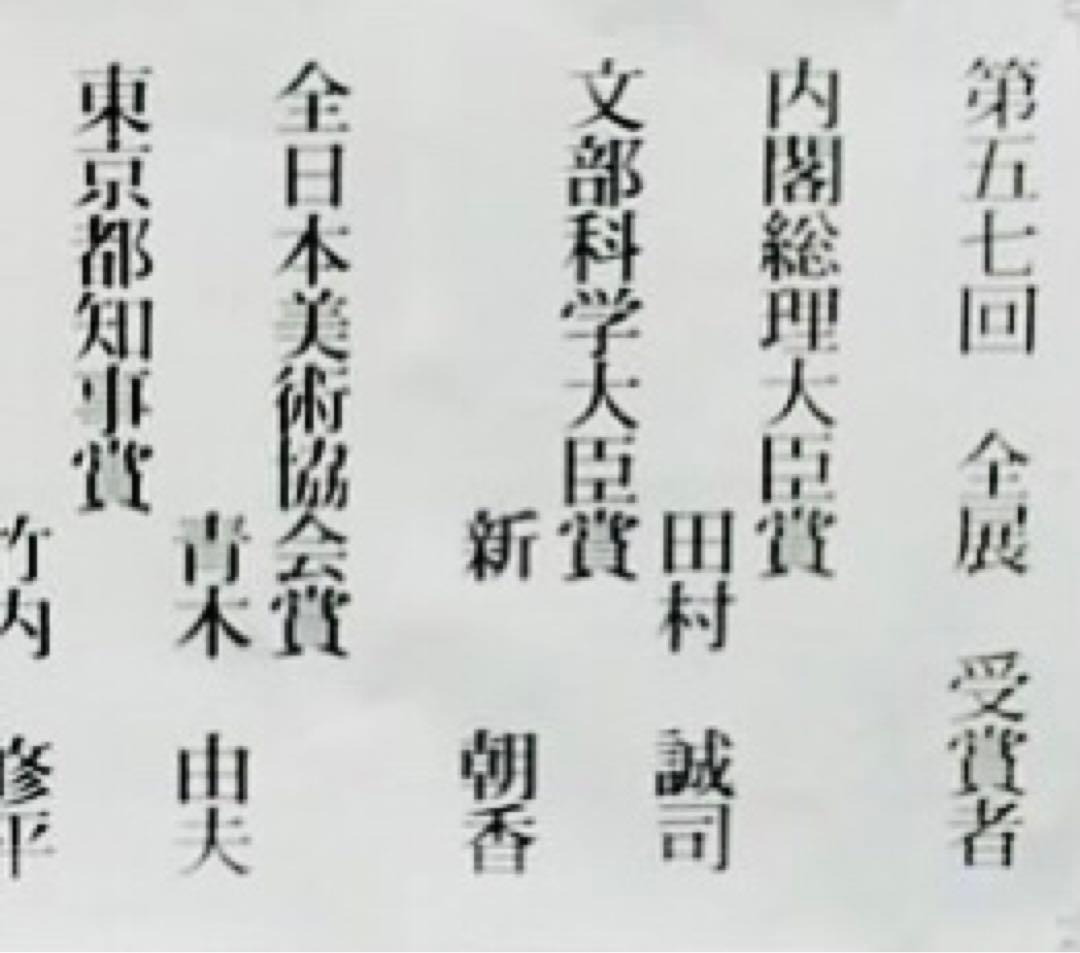 第五七回 全展 受賞者
内閣総理大臣賞
田村 誠司
文部科学大臣賞
新 朝香
全日本美術協会賞
青木 由夫
東京都知事賞
竹内 修平